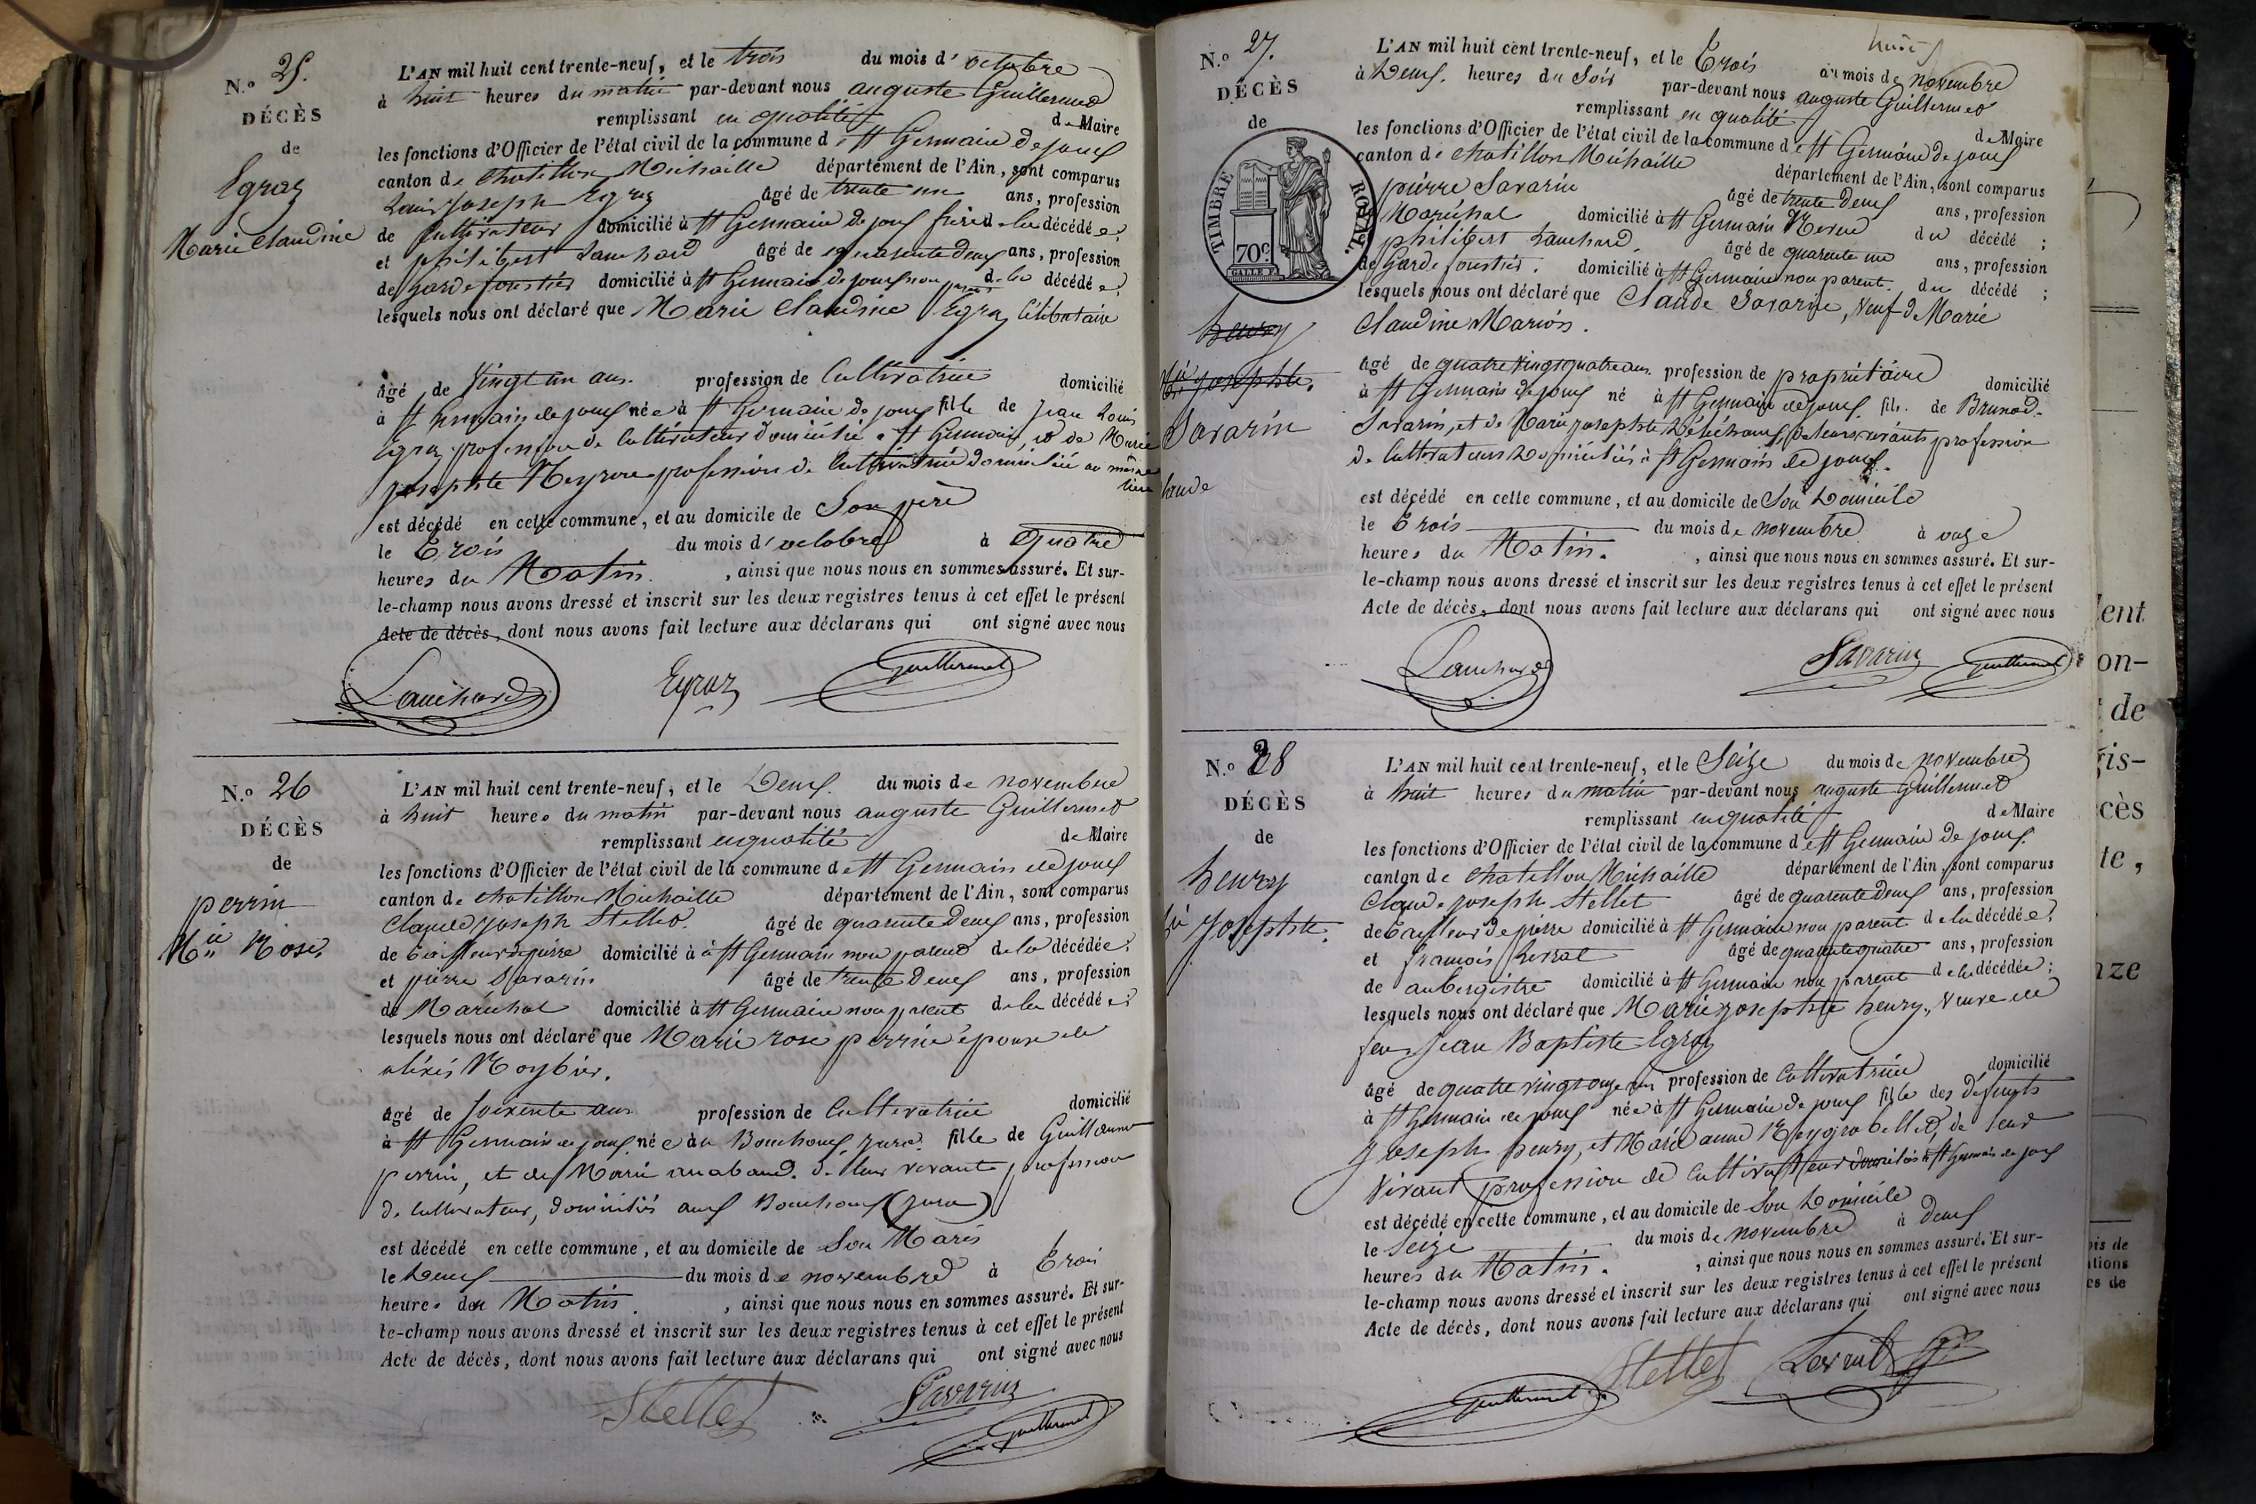 N.o 25.
DÉCÈS
de
Egraz
Marie Claudine
L'AN mil huit cent trente-neuf, et le trois du mois d'octobre
à huit heures du matin par-devant nous auguste Guillermet
remplissant en qualité de Maire
les fonctions d'Officier de l'état civil de la commune de St Germain de joux
canton de Chatillon Michaille département de l'Ain, sont comparus
Louis Joseph Egraz âgé de trente un ans, profession
de Cultivateur domicilié à St Germain de joux frère de la décédée;
et philibert Lanchard âgé de quarante deux ans, profession
de garde forestier domicilié à St Germain de joux non parent de la décédée;
lesquels nous ont déclaré que Marie Claudine Egraz Célibataire
âgé de vingt un ans. profession de Cultivatrice domicilié
à St Germain de joux née à St Germain de joux fille de Jean Louis
Egraz profession de Cultivateur domicilié à St Germain, et de Marie
josephte profession de Cultivatrice domiciliée au même
lieu
est décédé en cette commune, et au domicile de Son père
le Trois du mois d'octobre à quatre
heures du Matin. , ainsi que nous nous en sommes assuré. Et sur-
le-champ nous avons dressé et inscrit sur les deux registres tenus à cet effet le présent
Acte de décès, dont nous avons fait lecture aux déclarans qui ont signé avec nous
Lanchard Egraz Guillermet
N.o 26
DÉCÈS
de
perrin
Mie Rose.
L'AN mil huit cent trente-neuf, et le Deux. du mois de novembre
à huit heures du matin par-devant nous auguste Guillermet
remplissant en qualité de Maire
les fonctions d'Officier de l'état civil de la commune de St Germain de joux
canton de Chatillon Michaille département de l'Ain, sont comparus
Claude Joseph Stellet. âgé de quarante deux ans, profession
de Tailleur de pierre domicilié à St Germain non parent de la décédée;
et pierre Savarin âgé de trente Deux ans, profession
de Maréchal domicilié à St Germain non parent de la décédée;
lesquels nous ont déclaré que Marie rose perrin épouse de
aléxis
âgé de Soixante ans profession de Cultivatrice domicilié
à St Germain de joux née à Bouchoux jura. fille de Guillaume
perrin, et de Marie de leur vivant profession
de Cultivateur, domiciliés aux Bouchoux (jura)
est décédé en cette commune, et au domicile de Son Maris
le Deux du mois de novembre à Trois
heures du Matin. , ainsi que nous nous en sommes assuré. Et sur-
le-champ nous avons dressé et inscrit sur les deux registres tenus à cet effet le présent
Acte de décès, dont nous avons fait lecture aux déclarans qui ont signé avec nous
Stellet Savarin
Guillermet
N.o 27.
DÉCÈS
de
TIMBRE ROYAL.
70c
henry
Mie josephte.
Savarin
L'AN mil huit cent trente-neuf, et le Trois du mois de novembre
à Deux. heures du Soir par-devant nous auguste Guillermet
remplissant en qualité de Maire
les fonctions d'Officier de l'état civil de la commune de St Germain de joux
canton de Chatillon Michaille département de l'Ain, sont comparus
pierre Savarin âgé de trente Deux ans, profession
Maréchal domicilié à St Germain Neveu du décédé;
philibert Lanchard. âgé de quarante un ans, profession
de Garde forestier. domicilié à St Germain non parent. du décédé;
lesquels nous ont déclaré que Claude Savarin, Veuf de Marie
Claudine Marion.
âgé de quatre vingt quatre ans. profession de propriétaire domicilié
à St Germain de joux né à St Germain de joux. fils. de Brunod
Savarin, et de Marie josephte de leurs vivants profession
de Cultivateurs Domiciliés à St Germain de joux.
est décédé en cette commune, et au domicile de Son Domicile
le Trois du mois de novembre à onze
heures du Matin. , ainsi que nous nous en sommes assuré. Et sur-
le-champ nous avons dressé et inscrit sur les deux registres tenus à cet effet le présent
Acte de décès, dont nous avons fait lecture aux déclarans qui ont signé avec nous
Lanchard Savarin Guillermet
N.o 28
DÉCÈS
de
henry
josephte.
L'AN mil huit cent trente-neuf, et le Seize du mois de novembre
à huit heures du matin par-devant nous auguste Guillermet
remplissant en qualité de Maire
les fonctions d'Officier de l'état civil de la commune de St Germain de joux.
canton de Chatillon Michaille département de l'Ain, sont comparus
Claude joseph Stellet âgé de quarante deux ans, profession
de Tailleur de pierre domicilié à St Germain non parent de la décédée;
et françois âgé de quarante quatre ans, profession
de aubergiste domicilié à St Germain non parent de la décédée;
lesquels nous ont déclaré que Marie josephte henry, Veuve de
feu Jean Baptiste Egraz
âgé de quatre vingt onze ans profession de Cultivatrice domicilié
à St Germain de joux née à St Germain de joux fille des défunts
Joseph henry, et Marie anne de leur
vivant profession de Cultivateur domiciliés à St Germain de joux
est décédé en cette commune, et au domicile de Son Domicile
le Seize du mois de novembre à deux
heures du Matin. , ainsi que nous nous en sommes assuré. Et sur-
le-champ nous avons dressé et inscrit sur les deux registres tenus à cet effet le présent
Acte de décès, dont nous avons fait lecture aux déclarans qui ont signé avec nous
Guillermet Stellet